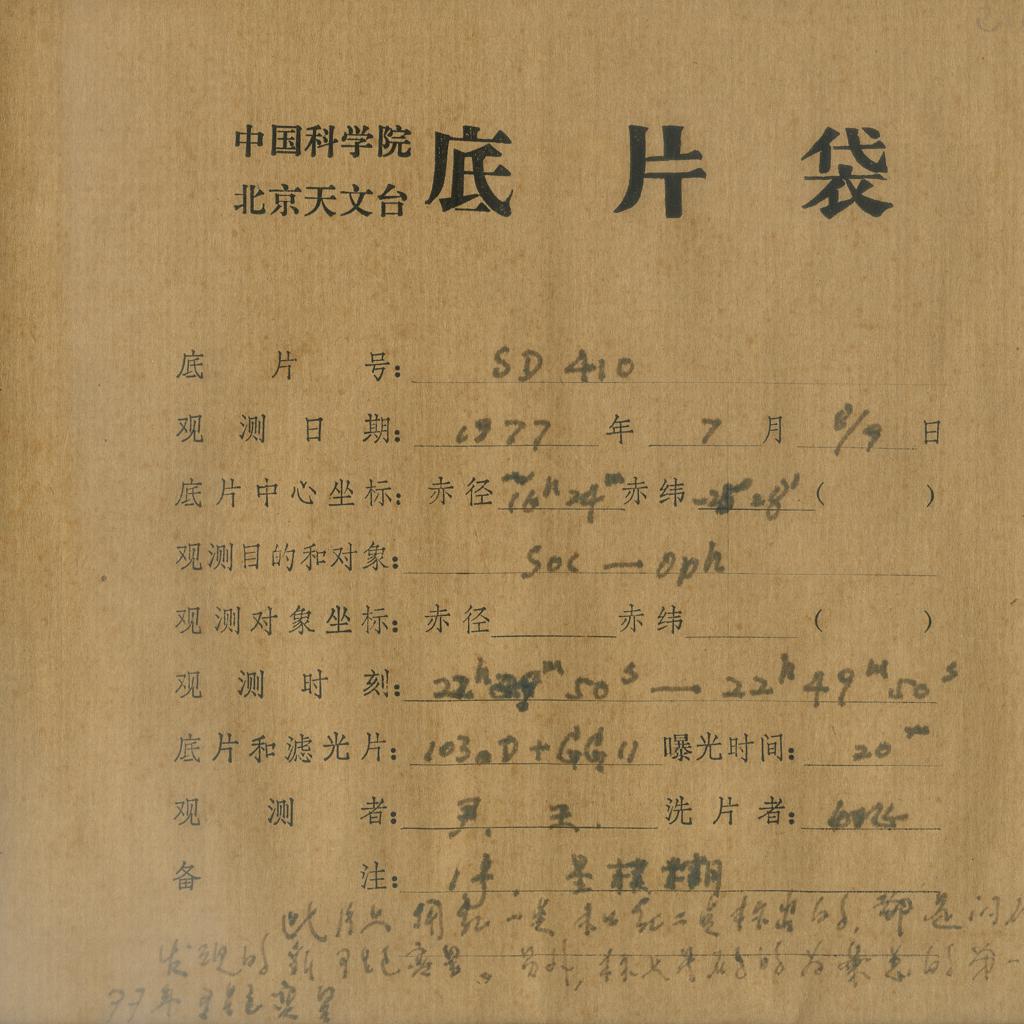 中国科学院
北京天文台
底片袋
底片号： SD 410
观测日期： 1977 年 7 月 8/9 日
底片中心坐标： 赤径 16h 24m 赤纬 -25° 28' ( )
观测目的和对象： Sco — Oph
观测对象坐标： 赤径 赤纬 ( )
观测时刻： 22h 29m 50s — 22h 49m 50s
底片和滤光片： 103aD + GG 11 曝光时间： 20m
观测者： 尹. 王. 洗片者：
备注： 1#. 星模糊
此片上用红一类和红二点标出的, 都是
发现的新 变星。另外, 的为 的第一
77年 变星